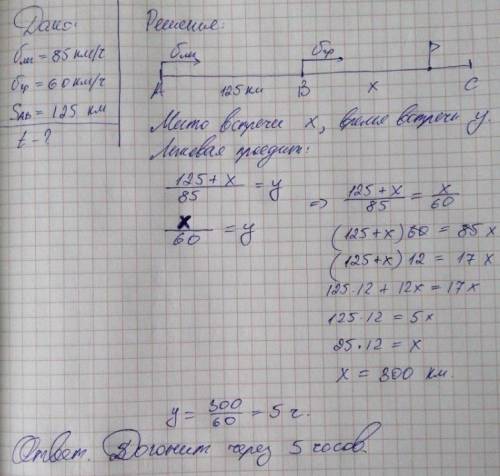 Дано:
Решение:
υлег = 85 км/ч
υгр = 60 км/ч
SАВ = 125 км
t - ?
υлег υгр P
A 125 км B x C
Место встречи x, время встречи y.
Легковая проедит:
(125 + x)/85 = y
x/60 = y
=> (125 + x)/85 = x/60
(125 + x) 60 = 85 x
(125 + x) 12 = 17 x
125 · 12 + 12x = 17x
125 · 12 = 5x
25 · 12 = x
x = 300 км.
y = 300/60 = 5 ч.
Ответ. Догонит через 5 часов.